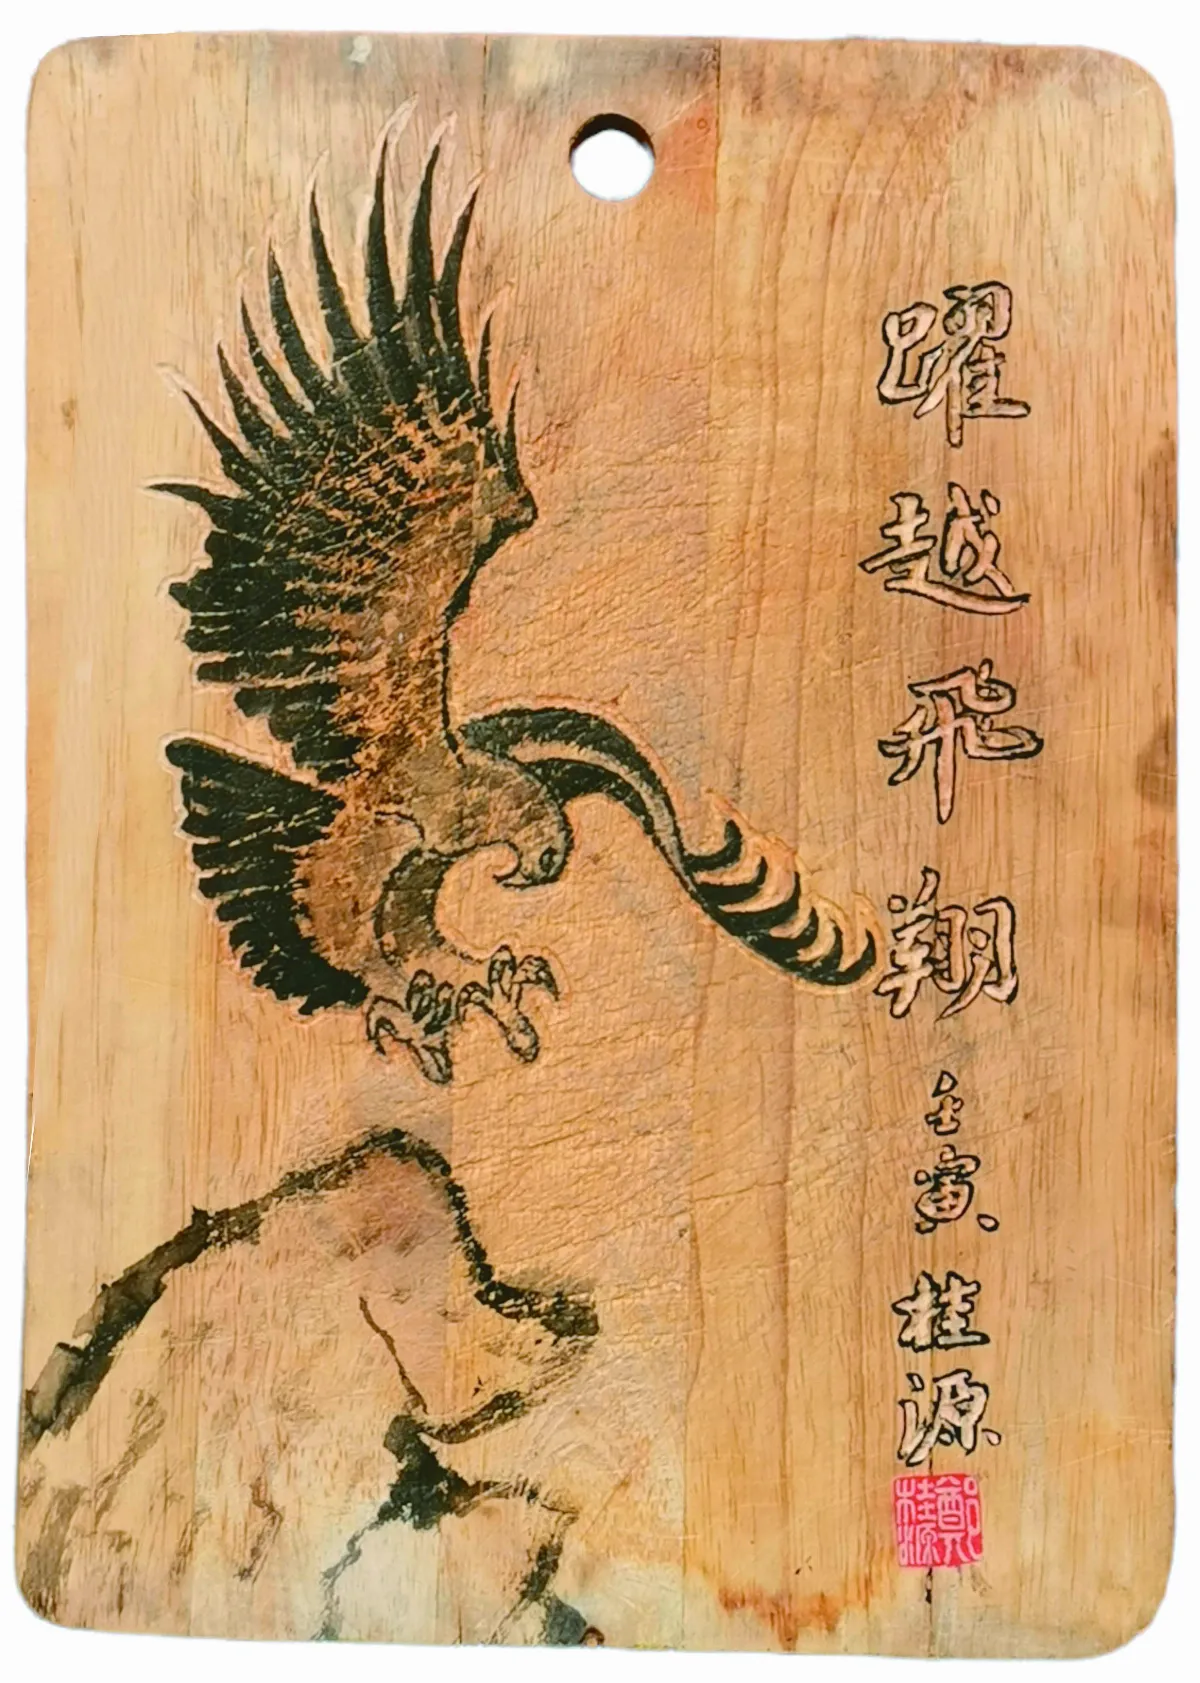 躍越飛翔
壬寅 桂源
鄭桂源